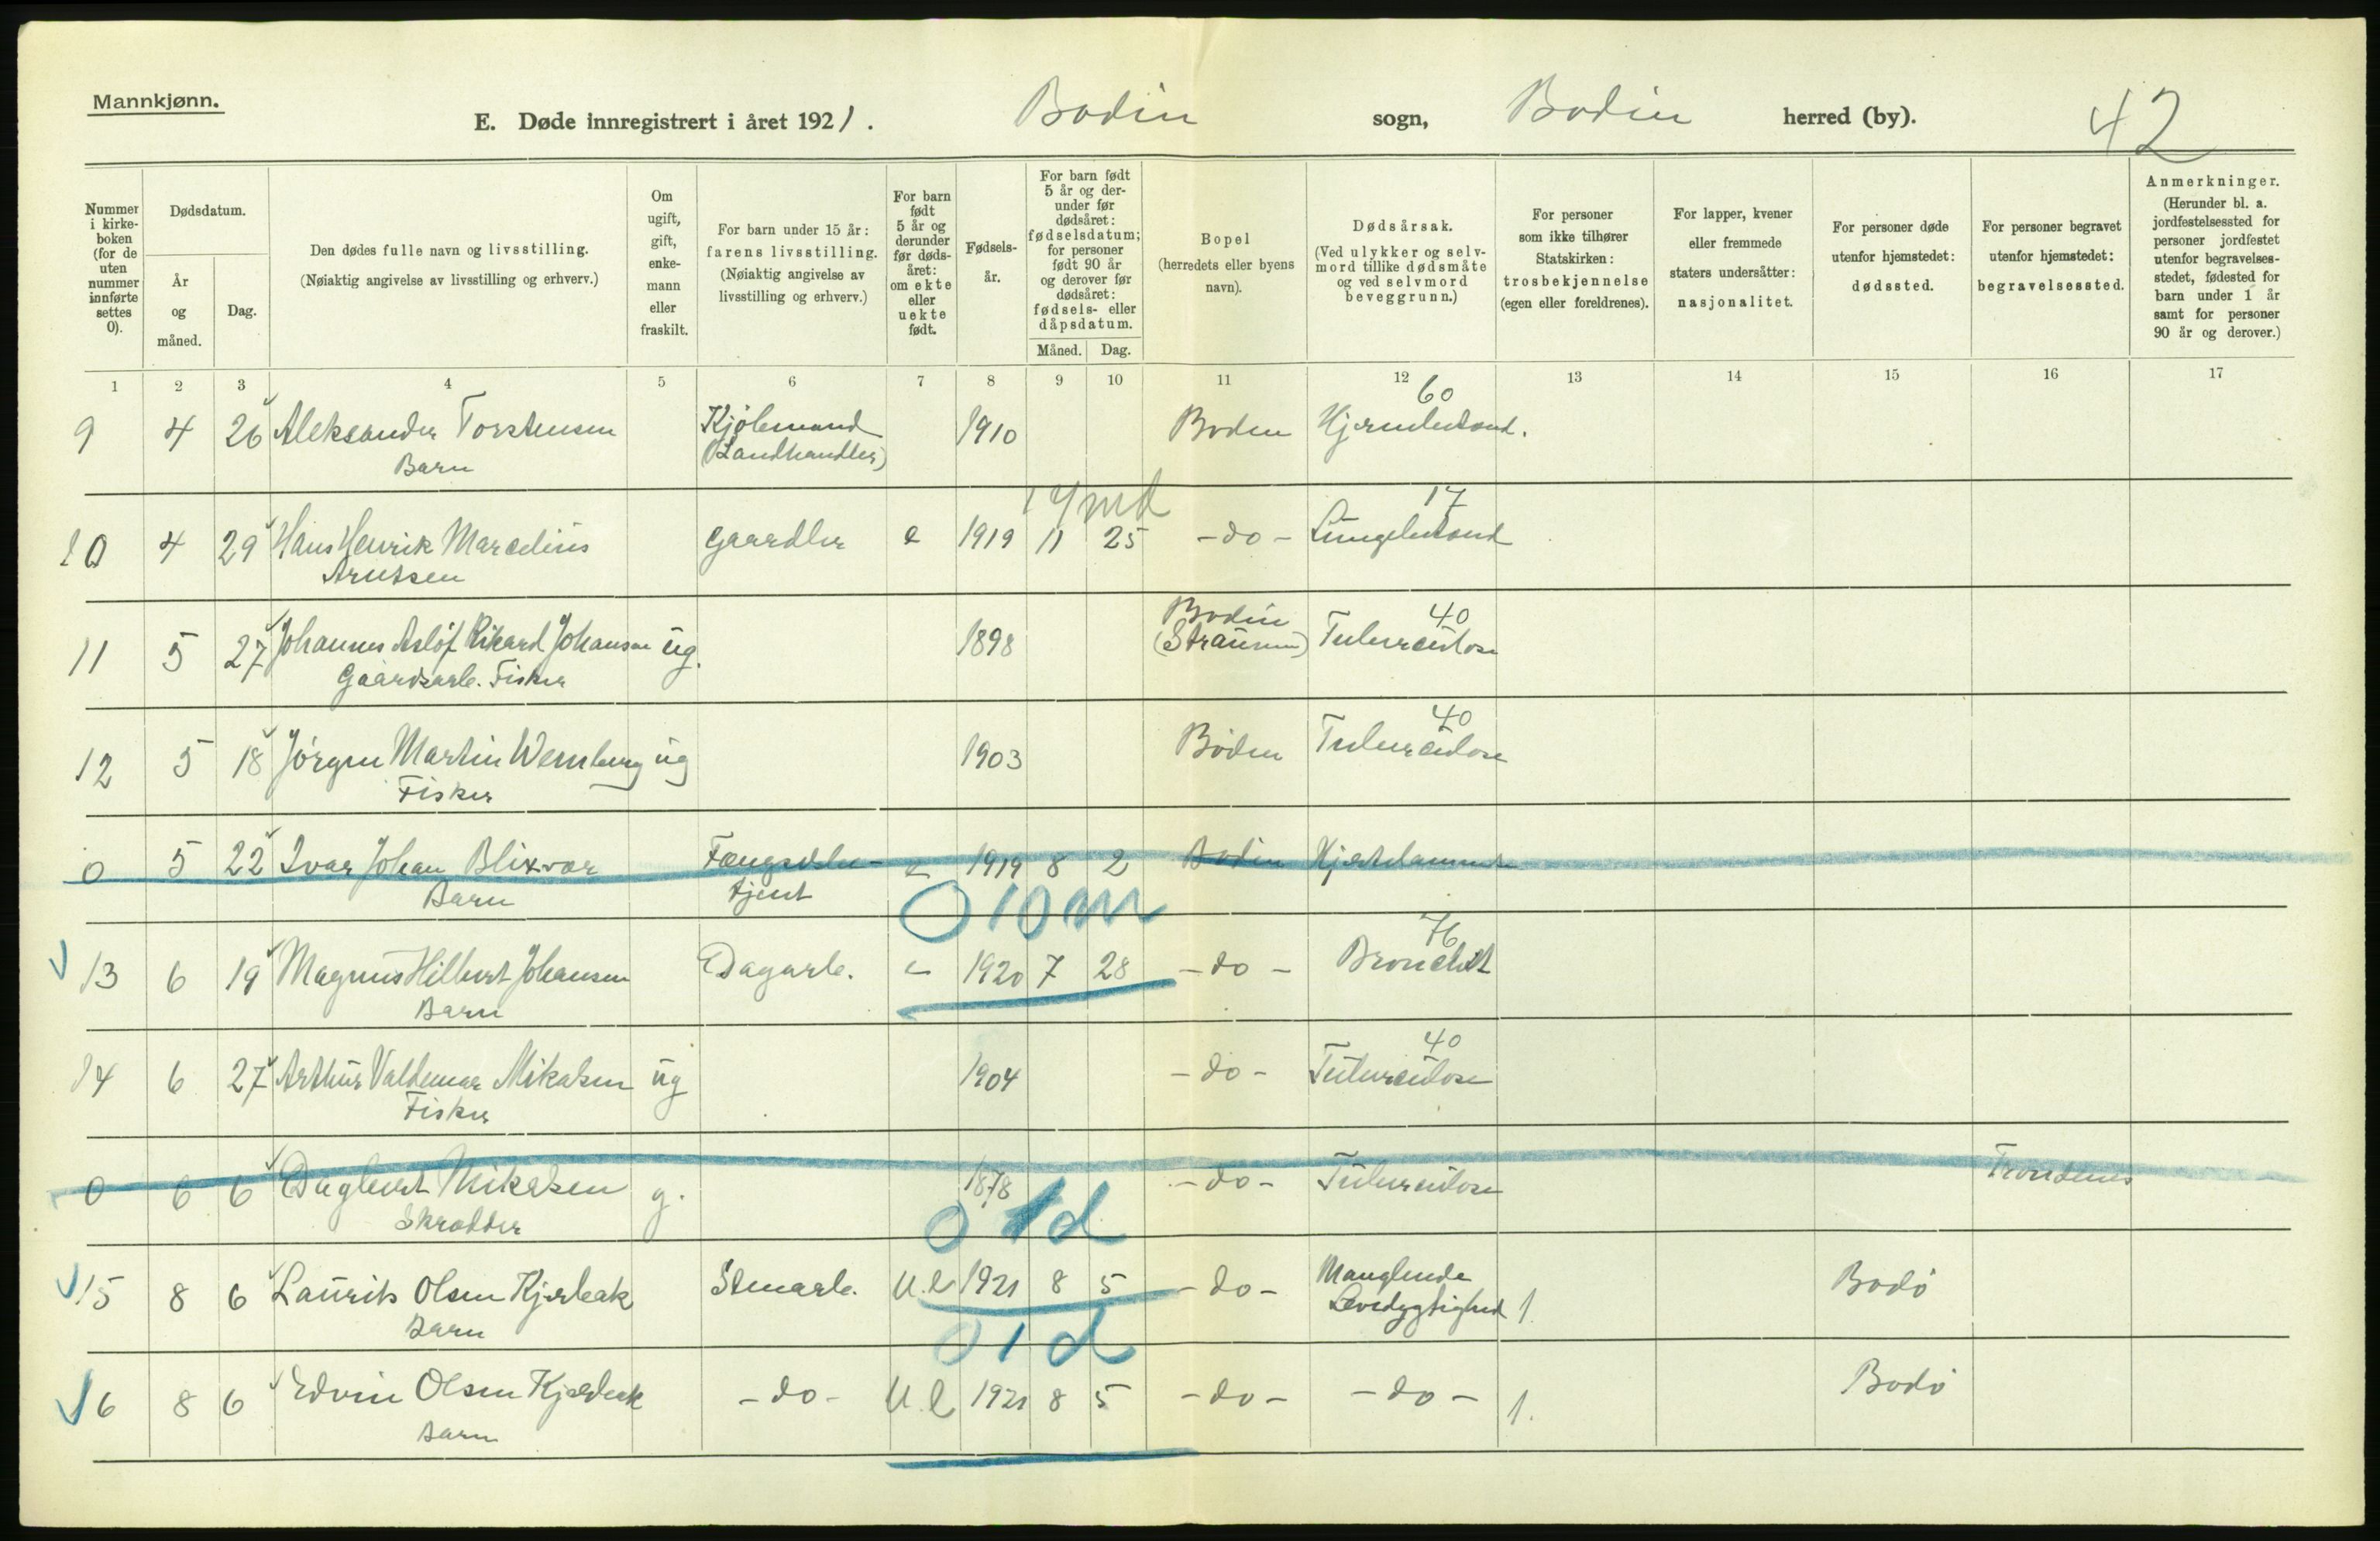 Mannkjønn.
E. Døde innregistrert i året 1921. Bodin sogn, Bodin herred (by). 42
Nummer i kirkeboken (for de uten nummer innførte settes 0).
Dødsdatum.
År og måned.
Dag.
Den dødes fulle navn og livsstilling.
(Nøiaktig angivelse av livsstilling og erhverv.)
Om ugift, gift, enkemann eller fraskilt.
For barn under 15 år: farens livsstilling.
(Nøiaktig angivelse av livsstilling og erhverv.)
For barn født 5 år og derunder før dødsåret: om ekte eller uekte født.
Fødselsår.
For barn født 5 år og derunder før dødsåret: fødselsdatum; for personer født 90 år og derover før dødsåret: fødsels- eller dåpsdatum.
Måned. Dag.
Bopel (herredets eller byens navn).
Dødsårsak.
(Ved ulykker og selvmord tillike dødsmåte og ved selvmord beveggrunn.)
For personer som ikke tilhører Statskirken: trosbekjennelse (egen eller foreldrenes).
For lapper, kvener eller fremmede staters undersåtter: nasjonalitet.
For personer døde utenfor hjemstedet: dødssted.
For personer begravet utenfor hjemstedet: begravelsessted.
Anmerkninger.
(Herunder bl. a. jordfestelsessted for personer jordfestet utenfor begravelsesstedet, fødested for barn under 1 år samt for personer 90 år og derover.)
1 2 3 4 5 6 7 8 9 10 11 12 13 14 15 16 17
60
9 4 26 Aleksander Torstensen Kjøbmand 1910 Boden Hjernebetænd.
Barn (Landhandler)
14 md 17
10 4 29 Hans Henrik Marcelius Gaardbr e 1919 11 25 -do- Lungebetænd
Arntsen
Bodin 40
11 5 27 Johannes Asløf Rikard Johansen ug. 1898 (Straumen) Tuberculose
Gaardsarb. Fisker
40
12 5 18 Jørgen Martin Wenberg ug 1903 Boden Tuberculose
Fisker
0 5 22 Ivar Johan Blixvær Fængselsbe- e 1919 8 2 Bodin Hjertelammelse
Barn tjent
0 10 m 76
13 6 19 Magnus Hilbert Johansen Dagarb. e 1920 7 28 -do- Bronchit
Barn
40
14 6 27 Arthur Valdemar Mikalsen ug 1904 -do- Tuberculose
Fisker
0 6 6 Dagbert Mikalsen g. 1878 -do- Tuberculose Trondenes
Skrædder
0 1 d
15 8 6 Laurits Olsen Kjærbak Stenarb. U.e 1921 8 5 -do- Manglende Levedygtighed 1. Bodø
Barn
0 1 d
16 8 6 Edvin Olsen Kjærbak -do- U.e 1921 8 5 -do- -do- 1. Bodø
Barn